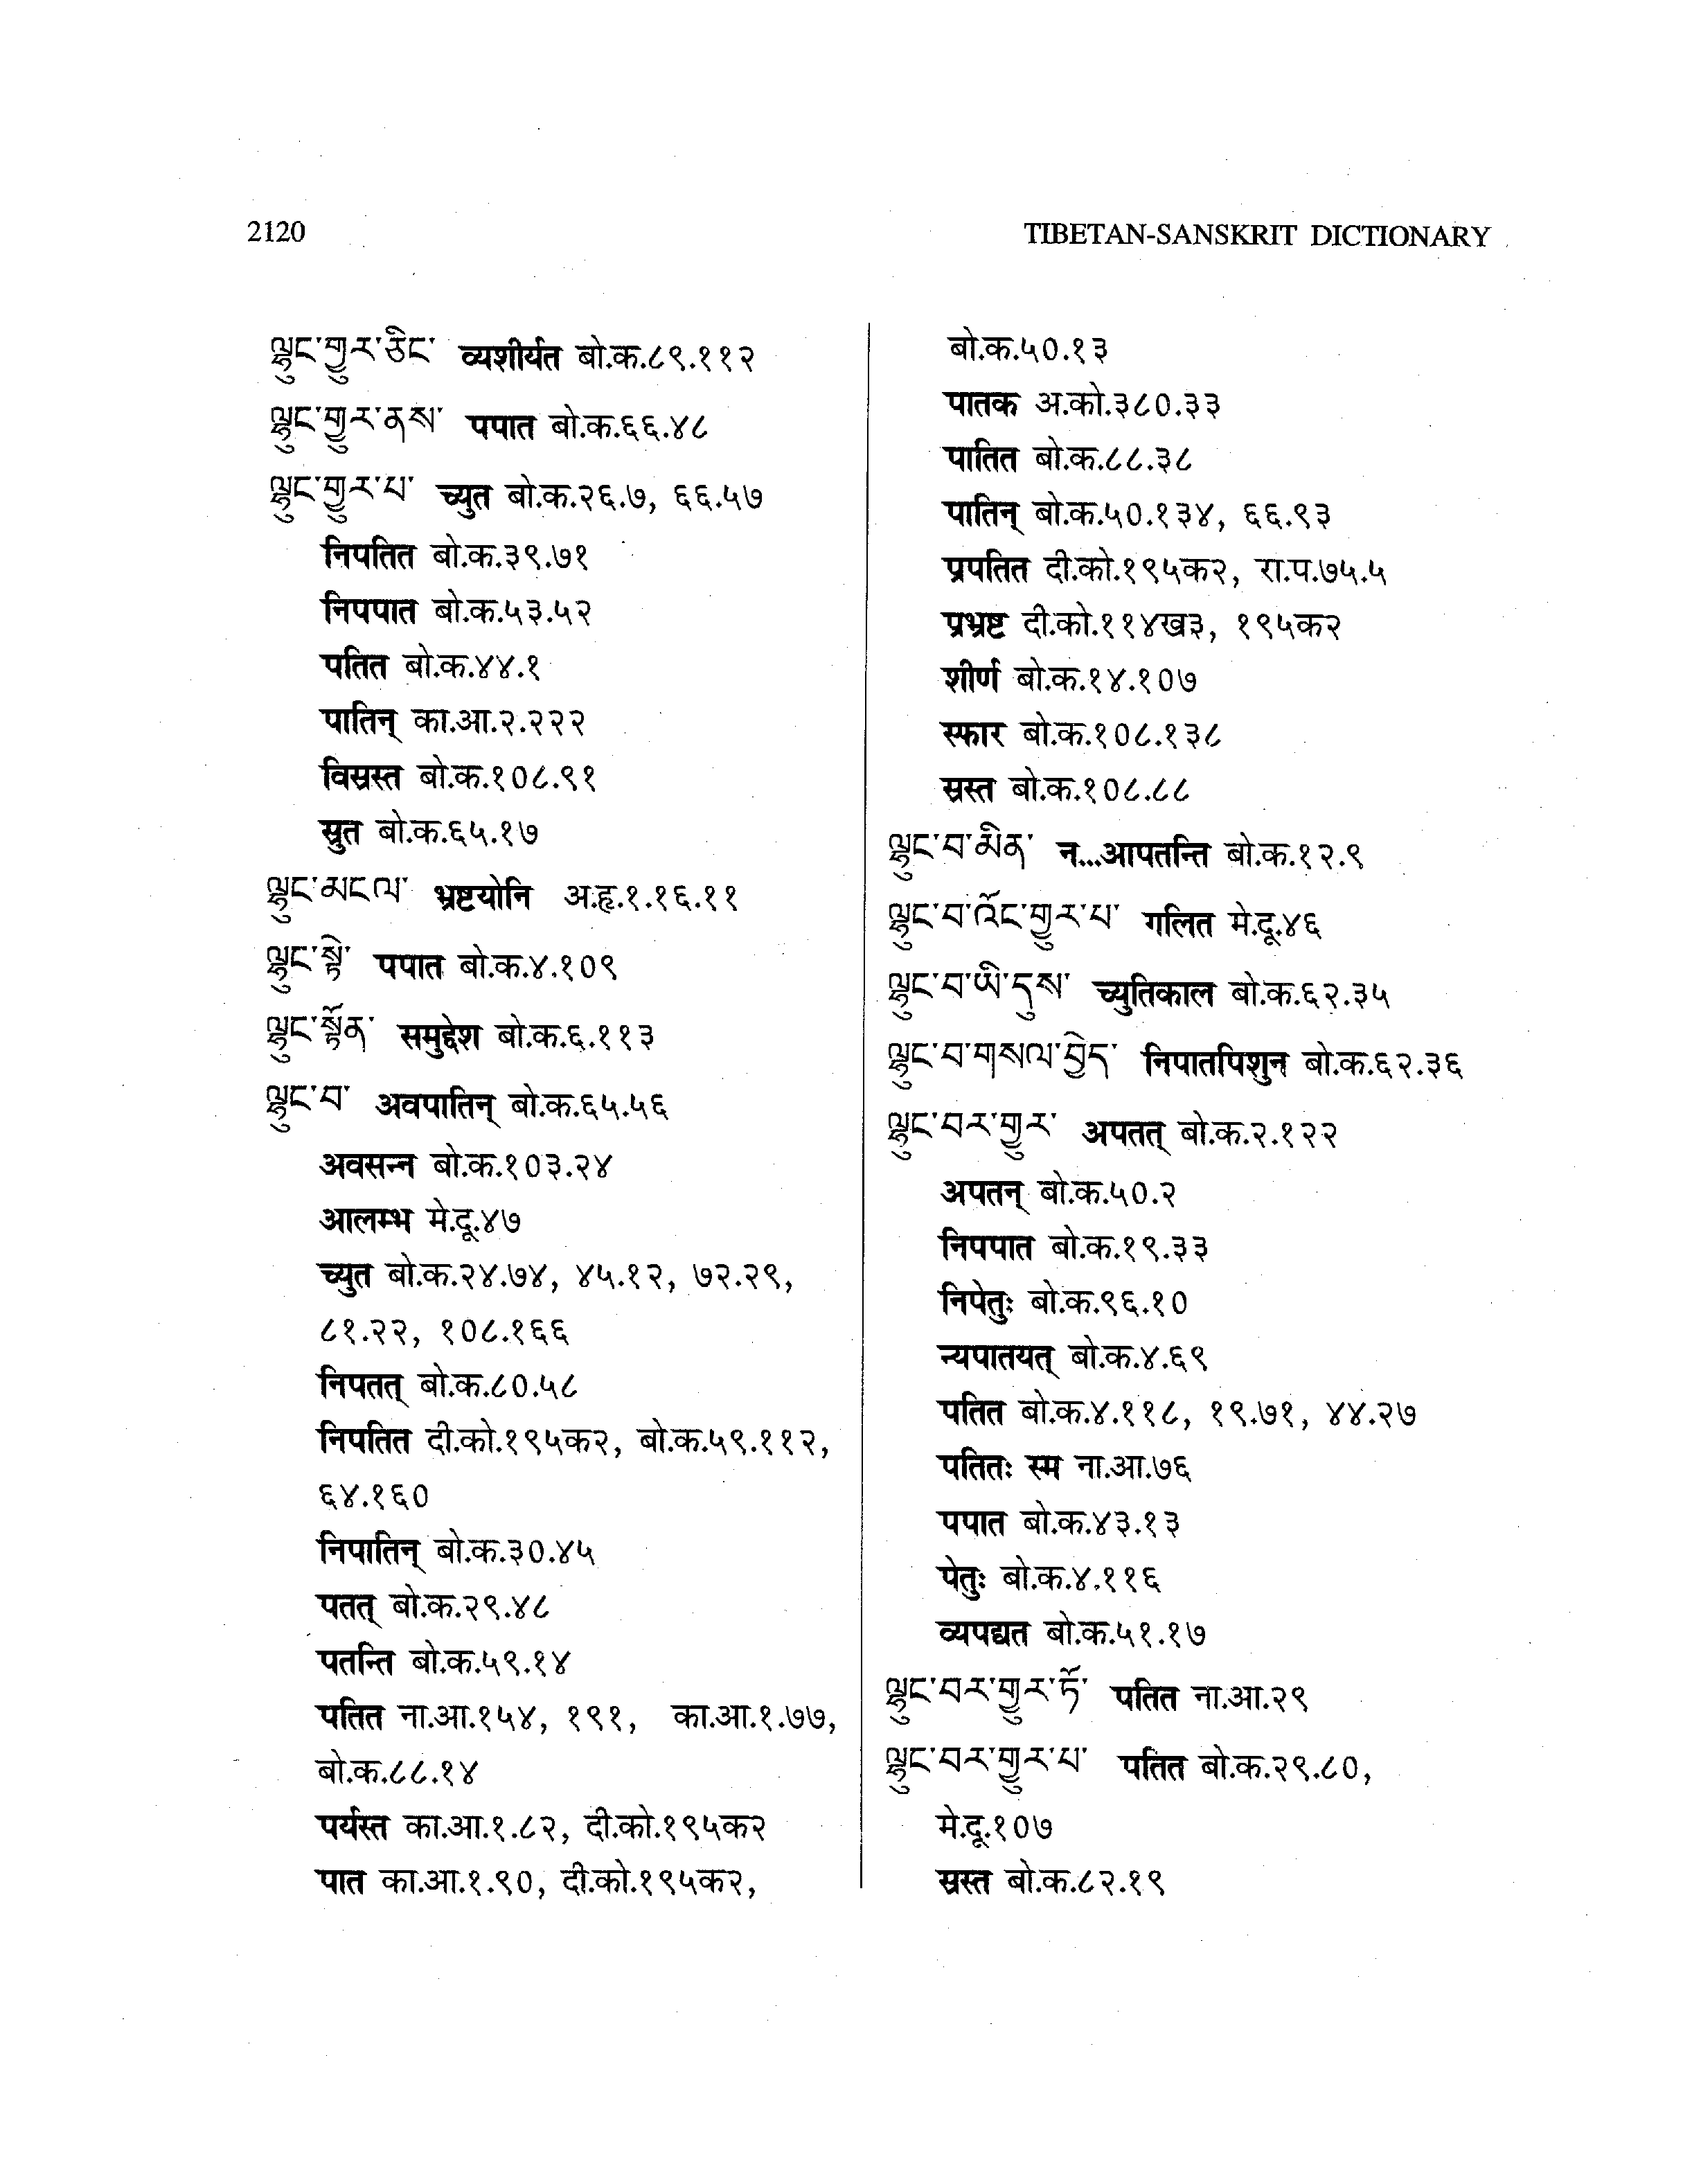 2120
TIBETAN-SANSKRIT DICTIONARY
ལྷུང་གྱུར་ཅིང་ व्यशीर्यत बो.क.८९.११२
ལྷུང་གྱུར་ནས་ पपात बो.क.६६.४८
ལྷུང་གྱུར་པ་ च्युत बो.क.२६.७, ६६.५७
निपतित बो.क.३९.७१
निपपात बो.क.५३.५२
पतित बो.क.४४.१
पातिन् का.आ.२.२२२
विस्रस्त बो.क.१०८.९१
स्रुत बो.क.६५.१७
ལྷུང་མངལ་ भ्रष्टयोनि अ.हृ.१.१६.११
ལྷུང་སྟེ་ पपात बो.क.४.१०९
ལྷུང་སྟོན་ समुद्देश बो.क.६.११३
ལྷུང་བ་ अवपातिन् बो.क.६५.५६
अवसन्न बो.क.१०३.२४
आलम्भ मे.दू.४७
च्युत बो.क.२४.७४, ४५.१२, ७२.२९,
८१.२२, १०८.१६६
निपतत् बो.क.८०.५८
निपतित दी.को.१९५क२, बो.क.५९.११२,
६४.१६०
निपातिन् बो.क.३०.४५
पतत् बो.क.२९.४८
पतन्ति बो.क.५९.१४
पतित ना.आ.१५४, १९१, का.आ.१.७७,
बो.क.८८.१४
पर्यस्त का.आ.१.८२, दी.को.१९५क२
पात का.आ.१.९०, दी.को.१९५क२,
बो.क.५०.१३
पातक अ.को.३८०.३३
पातित बो.क.८८.३८
पातिन् बो.क.५०.१३४, ६६.९३
प्रपतित दी.को.१९५क२, रा.प.७५.५
प्रभ्रष्ट दी.को.११४ख३, १९५क२
शीर्ण बो.क.१४.१०७
स्फार बो.क.१०८.१३८
स्रस्त बो.क.१०८.८८
ལྷུང་བ་མིན་ न...आपतन्ति बो.क.१२.९
ལྷུང་བ་འོང་གྱུར་པ་ गलित मे.दू.४६
ལྷུང་བ་ཡི་དུས་ च्युतिकाल बो.क.६२.३५
ལྷུང་བ་གསལ་བྱེད་ निपातपिशुन बो.क.६२.३६
ལྷུང་བར་གྱུར་ अपतत् बो.क.२.१२२
अपतन् बो.क.५०.२
निपपात बो.क.१९.३३
निपेतुः बो.क.९६.१०
न्यपातयत् बो.क.४.६९
पतित बो.क.४.११८, १९.७१, ४४.२७
पतितः स्म ना.आ.७६
पपात बो.क.४३.१३
पेतुः बो.क.४.११६
व्यपद्यत बो.क.५१.१७
ལྷུང་བར་གྱུར་ཏོ་ पतित ना.आ.२९
ལྷུང་བར་གྱུར་པ་ पतित बो.क.२९.८०,
मे.दू.१०७
स्रस्त बो.क.८२.१९